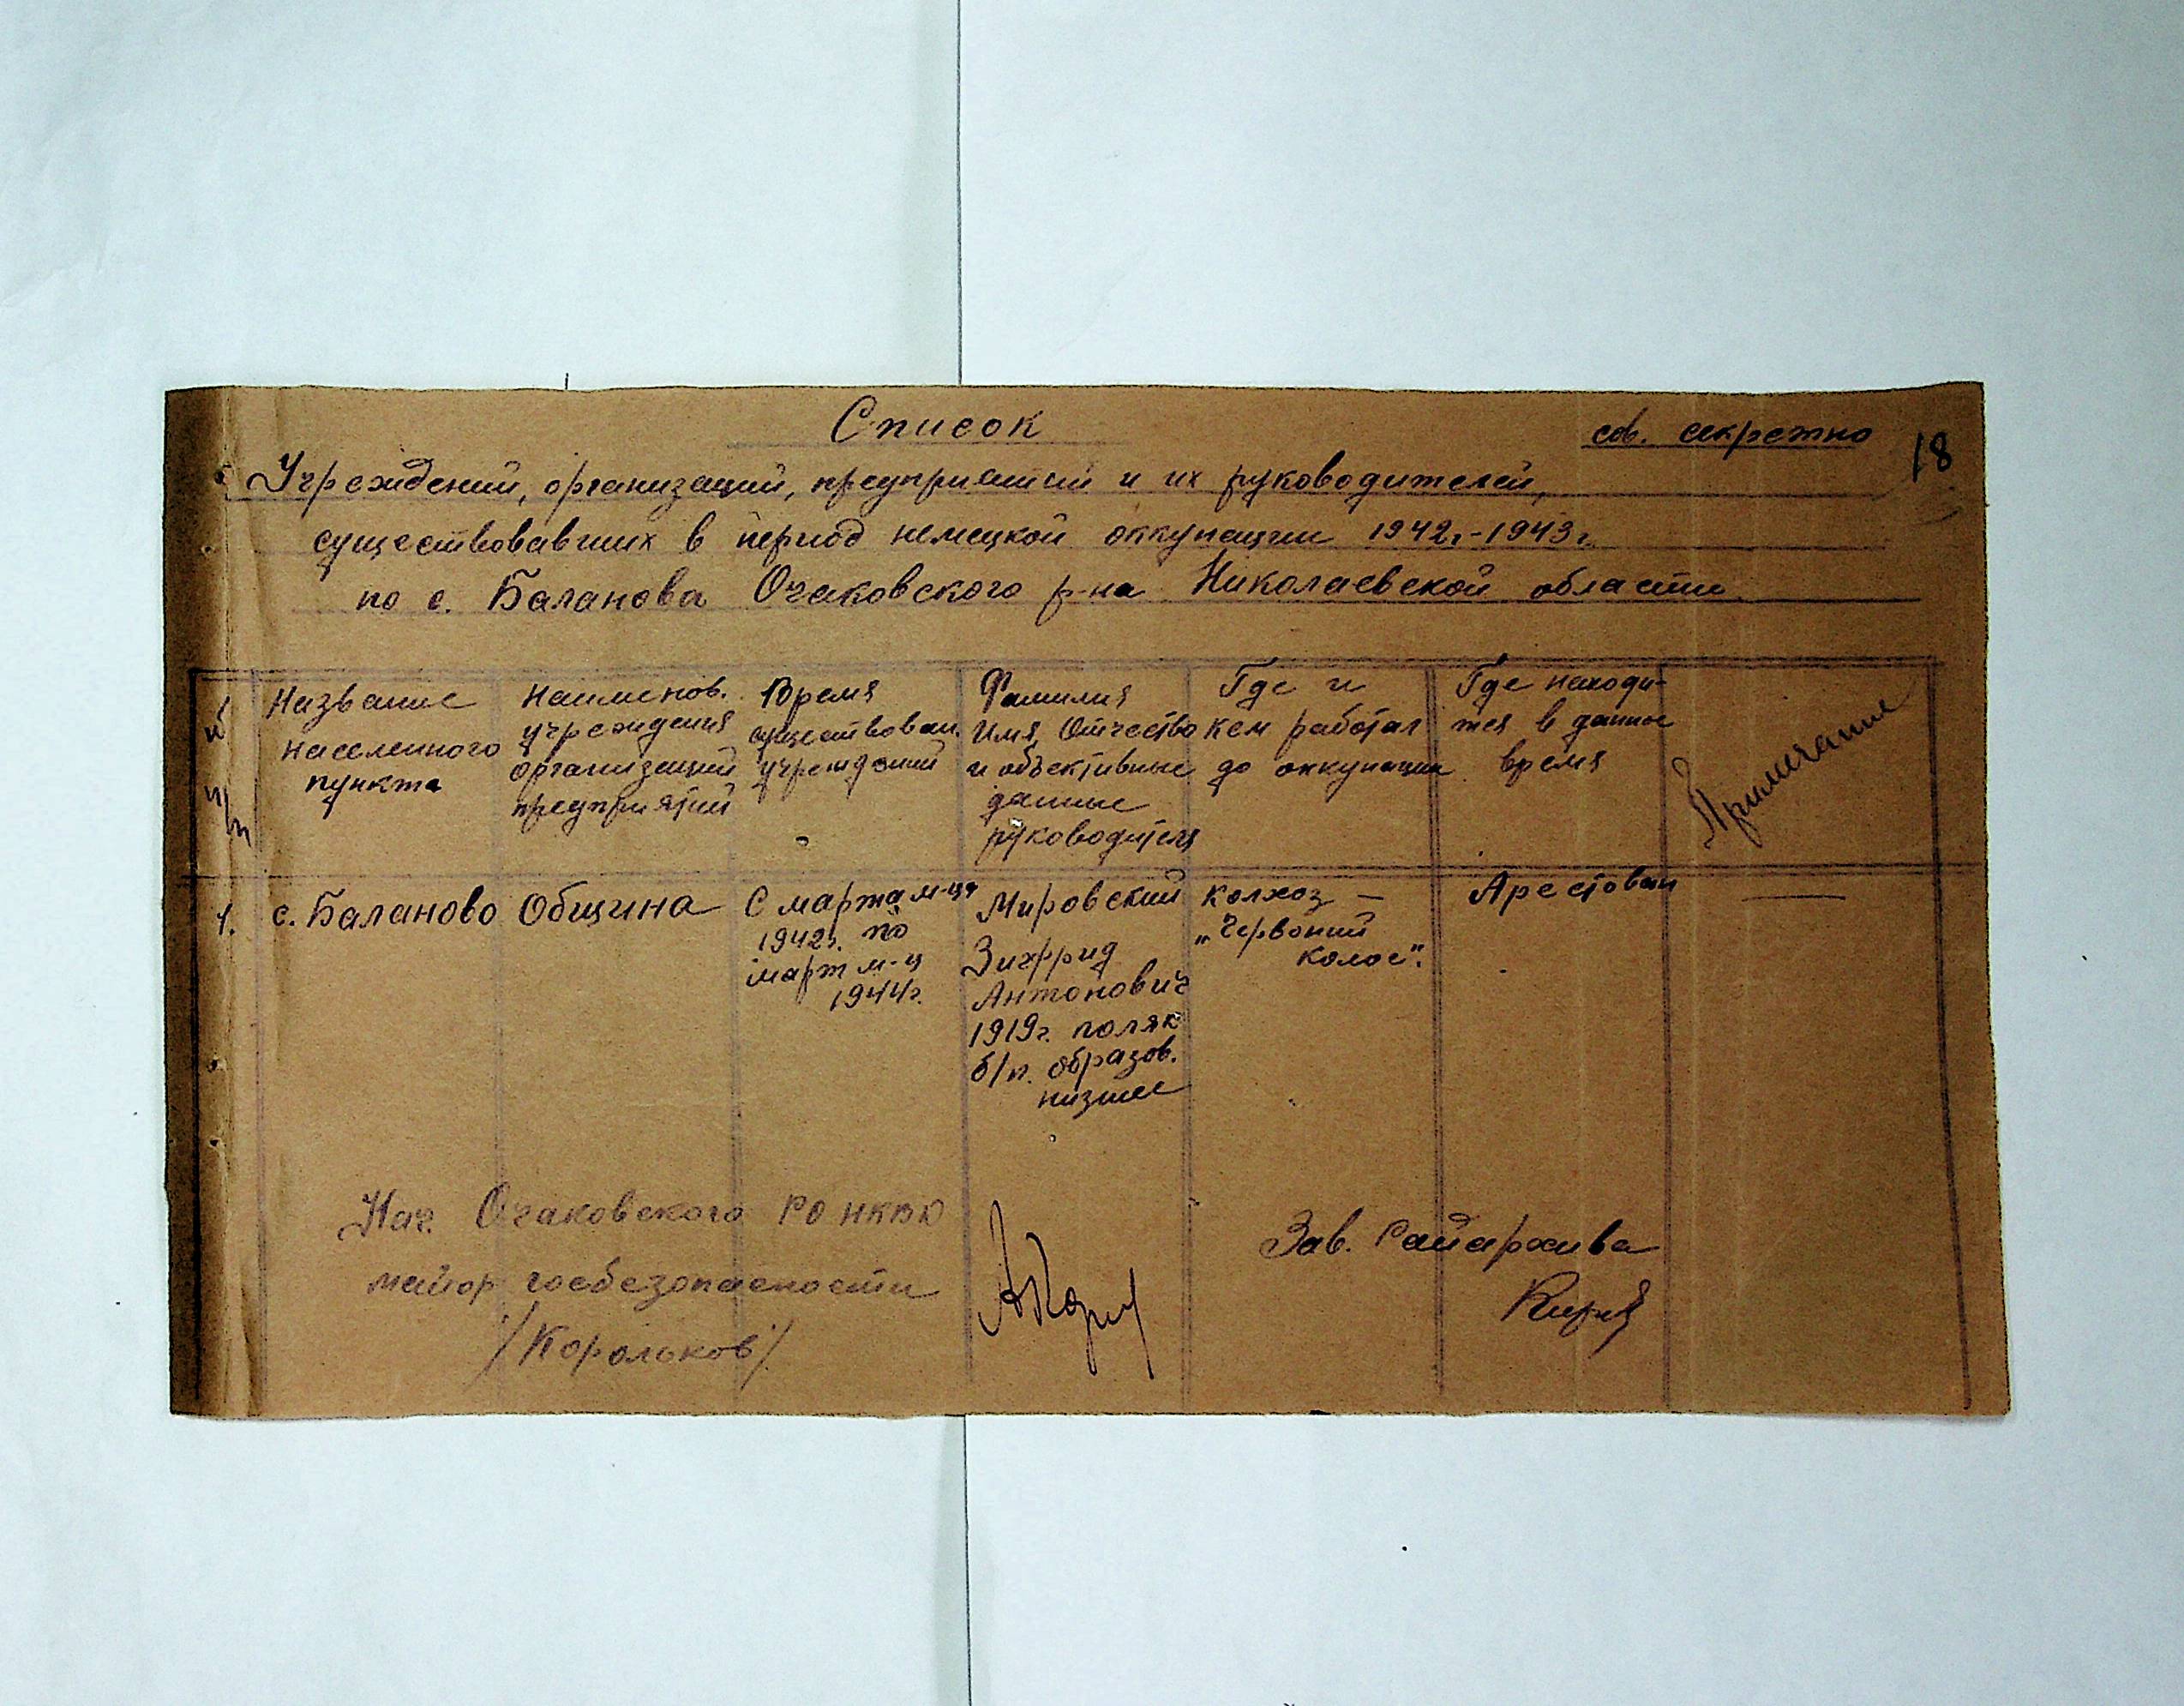 Список
сов. секретно
18
Учреждений, организаций, предприятий и их руководителей,
существовавших в период немецкой оккупации 1942г.-1943г.
по с. Баланова Очаковского р-на Николаевской области
№ п/п
Название
населенного
пункта
Наименов.
учреждения
организаций
предприятий
Время
существован.
учреждений
Фамилия
Имя, Отчество
и объективные
данные
руководителя
Где и
кем работал
до оккупации
Где находи-
тся в данное
время
Примечание
1.
с. Баланово
Община
С марта м-ца
1942г. по
март м-ц
1944г.
Мировский
Зигфрид
Антонович
1919г. поляк
б/п. образов.
низшее
колхоз —
„Червоний
колос".
Арестован
—
Нач. Очаковского РО НКВД
майор госбезопасности
/Корольков/
Зав. Райархива